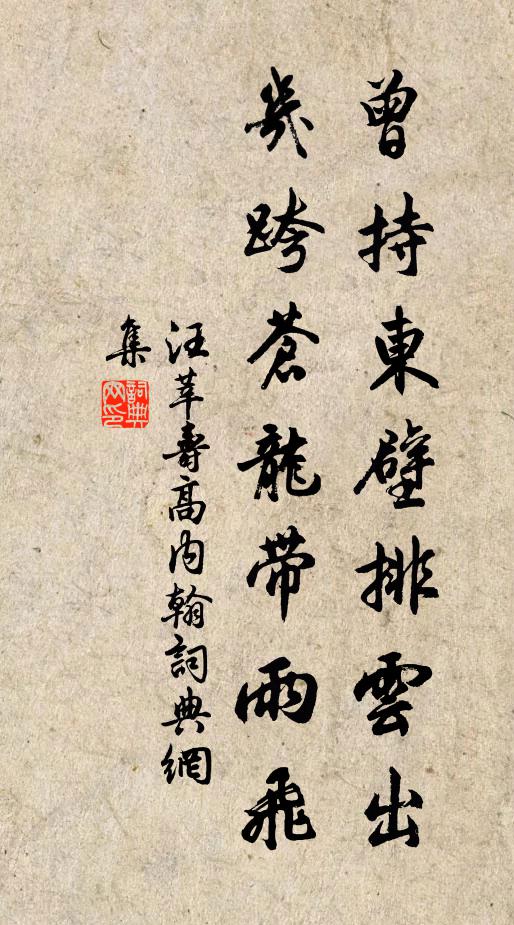 曾持東壁排雲出
幾跨蒼龍帶雨飛
汪莘壽高內翰詞典網
集
詞典網印